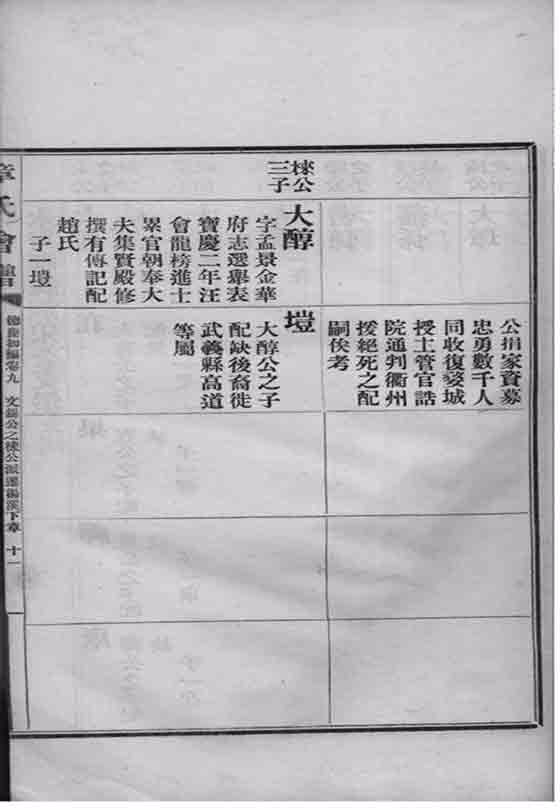 公捐家資募
忠勇數千人
同收復婺城
授主管官誥
院通判衢州
援絕死之配
嗣俟考
棟公
三子
大醇
字孟景金華
府志選舉表
寶慶二年汪
會龍榜進士
累官朝奉大
夫集賢殿修
撰有傳記配
趙氏
子一塏
塏
大醇公之子
配缺後裔徙
武義縣高道
等屬
章氏會譜
德慶初編卷九
公之棟公派遷
溪下章
十一